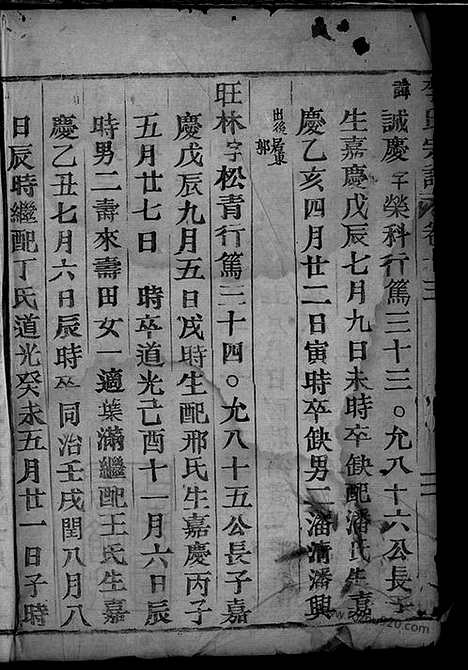 李氏宗譜 卷十三
諱誠慶字榮科行篤三十三○允八十六公長子
生嘉慶戊辰七月九日未時卒缺配潘氏生嘉
慶乙亥四月廿二日寅時卒缺男二潘清潘興
出後
旺林字松青行篤三十四○允八十五公長子嘉
慶戊辰九月五日戌時生配邢氏生嘉慶丙子
五月廿七日 時卒道光己酉十一月六日辰
時男二壽來壽田女一適葉滿繼配王氏生嘉
慶乙丑七月六日辰時卒同治壬戌閏八月八
日辰時繼配丁氏道光癸未五月廿一日子時